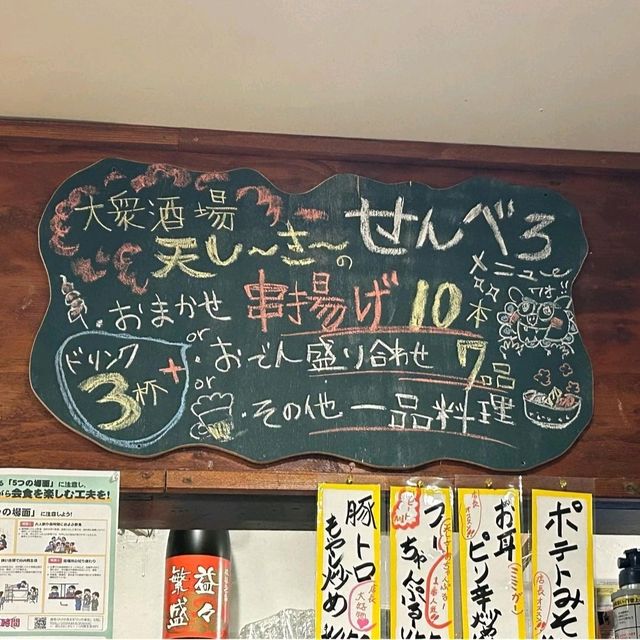 大衆酒場
天し〜さ〜の
せんべろ
メニュー
・おまかせ 串揚げ 10本
or
・おでん盛り合わせ 7品
or
・その他 一品料理
ドリンク
3杯
+
「5つの場面」に注意し、
会食を楽しむ工夫を!
の場面」に注意しよう!
益々
繁盛
豚トロ
もやし炒め
店長
大好物
フー
ちゃんぷるー
お耳
ピリ辛炒
ミミガー
ポテトみそ
店長オススメ